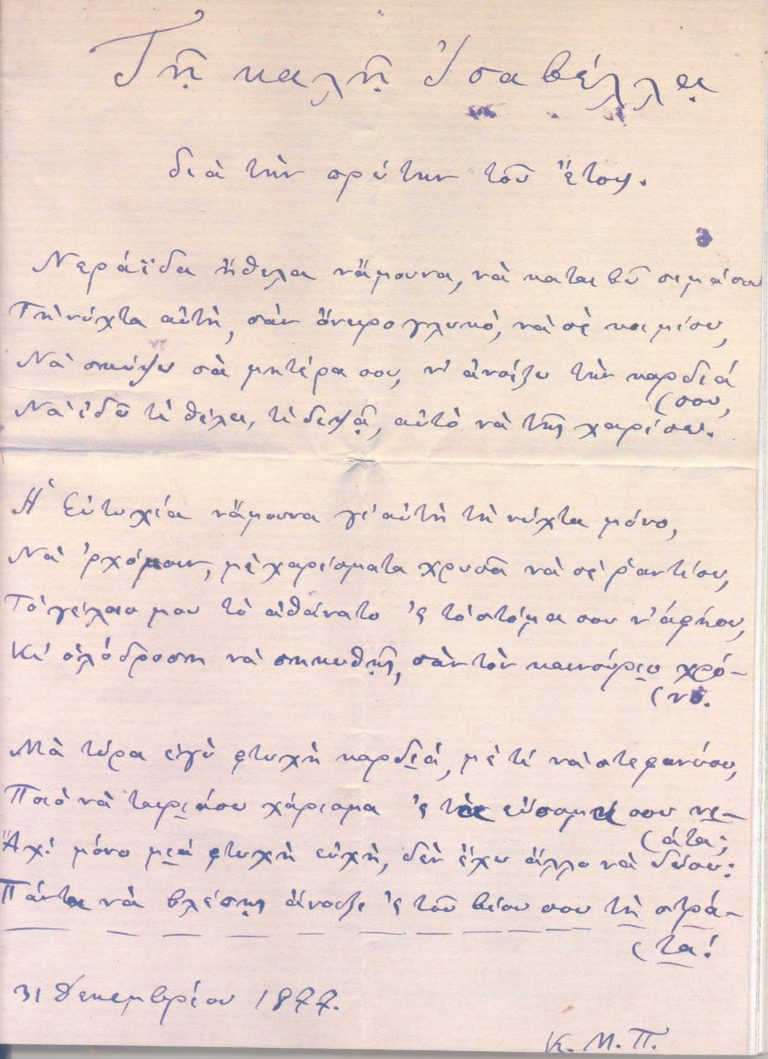 Τῇ καλῇ Ἰσαβέλλᾳ
διὰ τὴν πρώτην τοῦ ἔτους.
Νεράϊδα ἤθελα νἄμουνα, νὰ καταιβῶ σιμά σου
Τὴ νύχτα αὐτὴ, σὰν ὄνειρο γλυκὸ, νὰ σὲ κοιμίσω,
Νὰ σκύψω σὰ μητέρα σου, ν' ἀνοίξω τὴν καρδιά
(σου,
Νὰ ἰδῶ τὶ θέλει, τὶ διψᾷ, αὐτὸ νὰ τῆς χαρίσω.
Ἡ Εὐτυχία νἄμουνα γι' αὐτὴ τὴ νύχτα μόνο,
Νὰ 'ρχόμουν, μὲ χαρίσματα χρυσᾶ νὰ σὲ ῥαντίσω,
Τὸ γέλοιο μου τὸ ἀθάνατο 'ς τὸ στόμα σου ν' ἀφήσω,
Κι' ὁλόδροση νὰ σηκωθῇς, σὰν τὸν καινούριο χρό-
(νο.
Μὰ τώρα ἐγὼ φτωχὴ καρδιά, μὲ τί νὰ στεφανώσω,
Ποιὸ νὰ ταιριάσω χάρισμα 'ς τὰ εὔοσμά σου νει-
(άτα;
Ἄχ! μόνο μιὰ φτωχὴ εὐχὴ, δὲν ἔχω ἄλλο νὰ δώσω:
Πάντα νὰ βλέπῃς ἄνοιξι 'ς τοῦ βίου σου τὴ στρά-
(τα!
31 Δεκεμβρίου 1877.
Κ. Μ. Π.